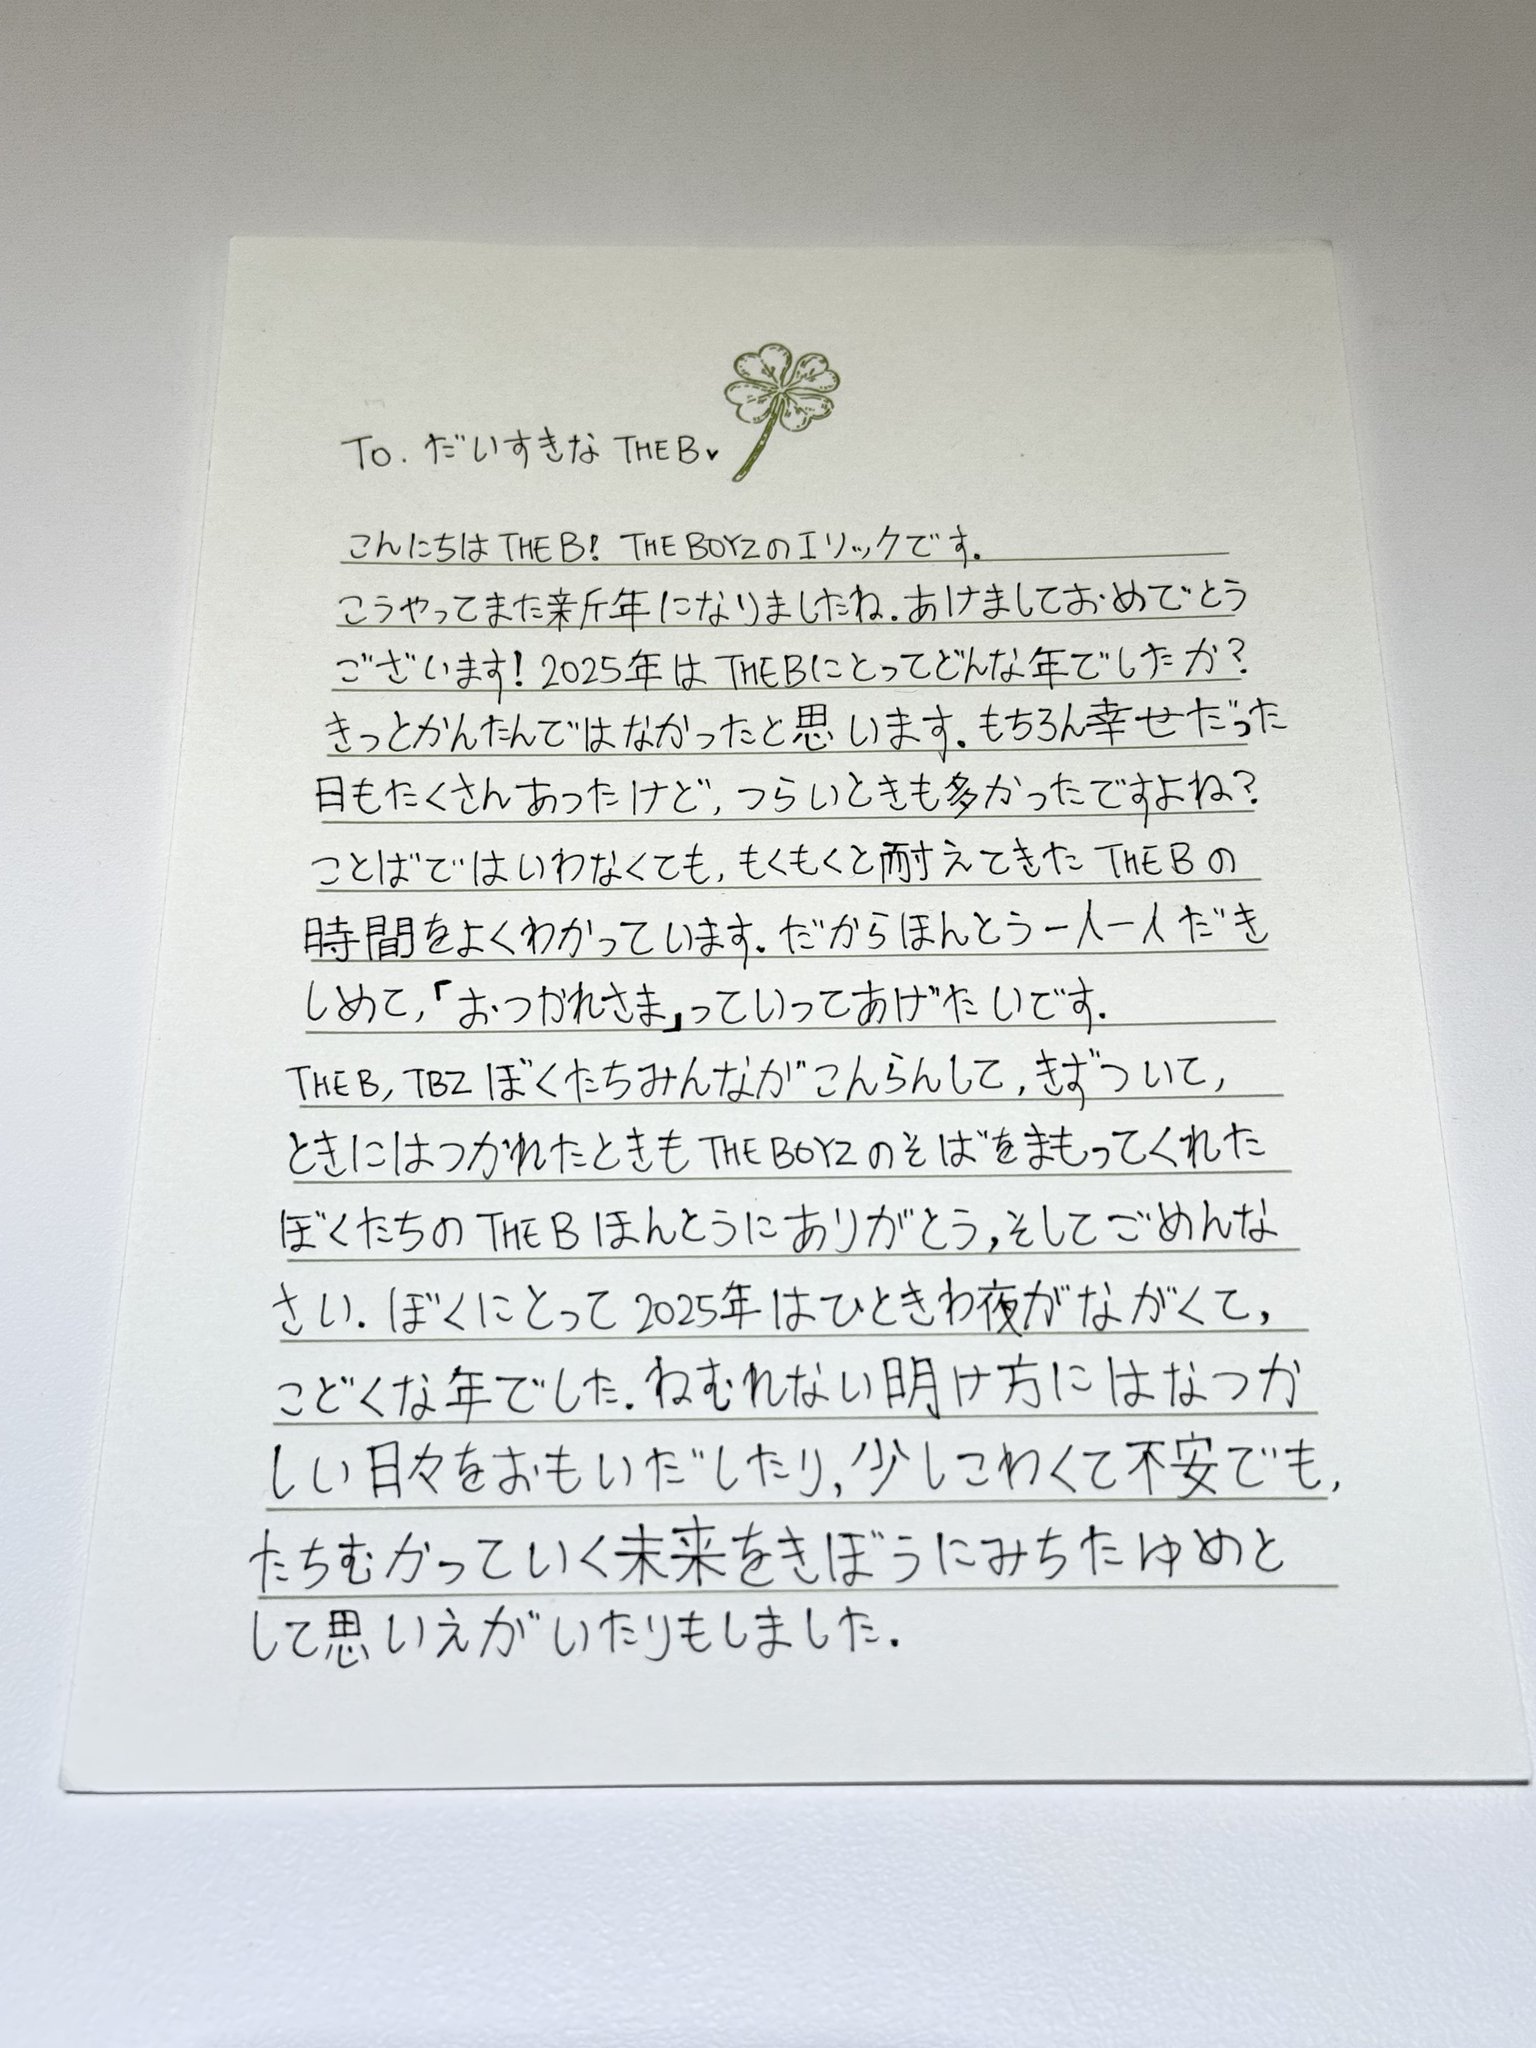 To. だいすきな THE B♥
こんにちは THE B! THE BOYZのエリックです.
こうやってまた新年になりましたね. あけましておめでとう
ございます! 2025年は THE Bにとってどんな年でしたか?
きっとかんたんではなかったと思います. もちろん幸せだった
日もたくさんあったけど, つらいときも多かったですよね?
ことばではいわなくても, もくもくと耐えてきた THE B の
時間をよくわかっています. だからほんとう一人一人だき
しめて,「おつかれさま」っていってあげたいです.
THE B, TBZ ぼくたちみんながこんらんして, きずついて,
ときにはつかれたときも THE BOYZ のそばをまもってくれた
ぼくたちの THE B ほんとうにありがとう, そしてごめんな
さい. ぼくにとって 2025年はひときわ夜がながくて,
こどくな年でした. ねむれない明け方にはなつか
しい日々をおもいだしたり, 少しこわくて不安でも,
たちむかっていく未来をきぼうにみちたゆめと
して思いえがいたりもしました.